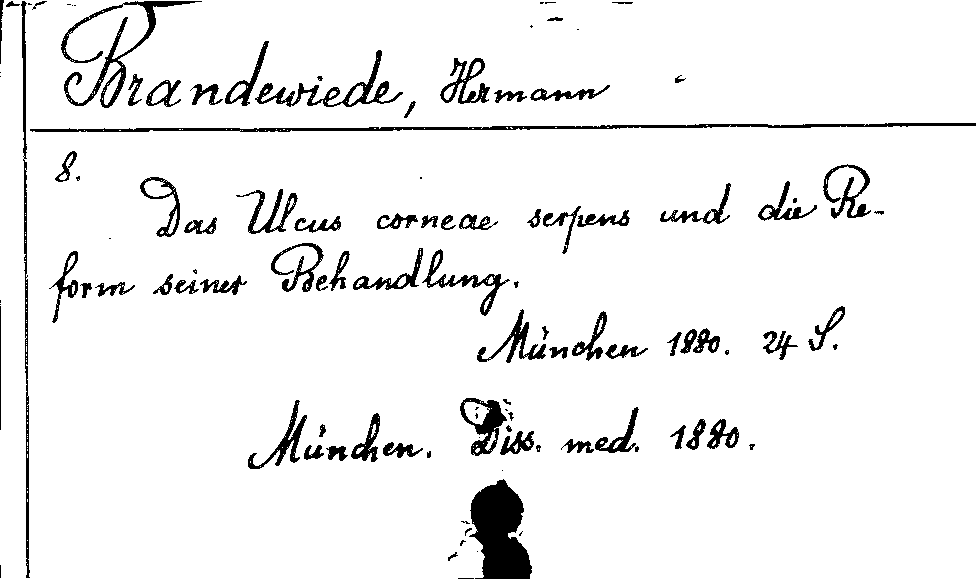 Brandewiede, Hermann
8.
Das Ulcus corneae serpens und die Re-
form seiner Behandlung.
München 1880. 24 S.
München. Diss. med. 1880.